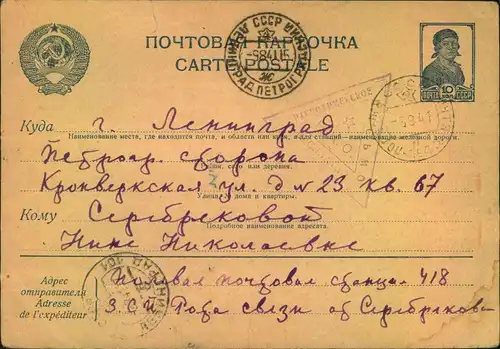 ПОЧТОВАЯ КАРТОЧКА
CARTE POSTALE
ПОЧТА 10 СССР
ЛЕНИНГРАД ПЕТРОГР
КРАСНОАРМЕЙСКОЕ
Куда г. Ленинград
Наименование места, где находится почта, и области или края, а для станций—наименование железной дороги.
Петрогр. сторона
Район, село или деревня.
Кронверкская ул. д № 23 кв. 67
Улица, № дома и квартиры.
Кому Серебрековой
Подробное наименование адресата.
Нине Николаевне
Адрес отправителя
Adresse de l'expéditeur
Полевая почтовая станция 418
З.С.П Рота связи от Серебрякова